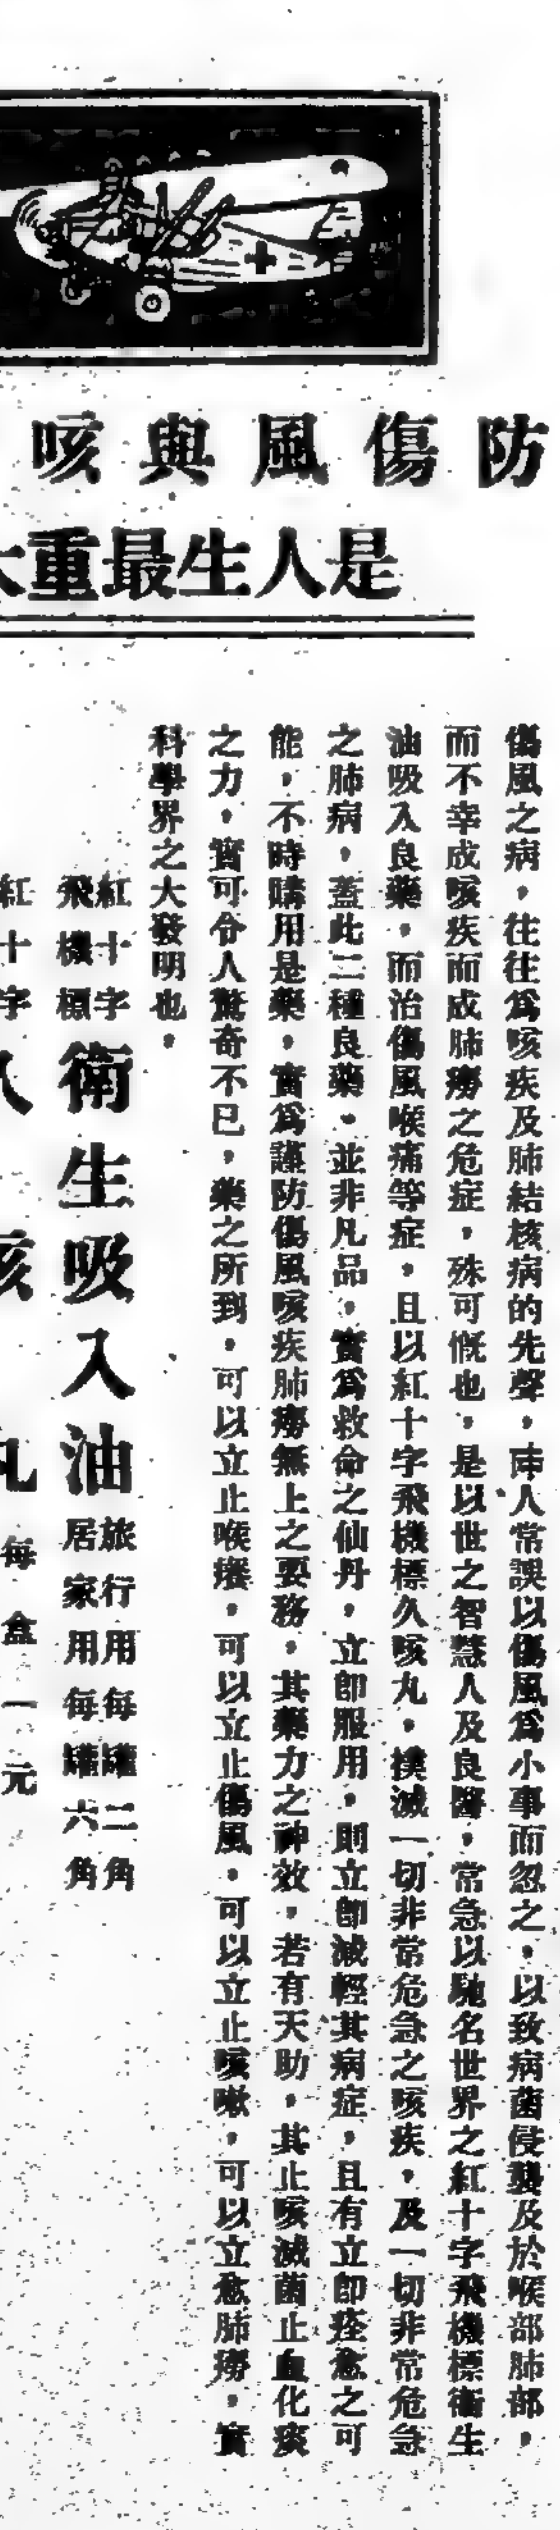 防傷風與咳
是人生最重大
傷風之病，往往爲咳疾及肺結核病的先聲，庸人常誤以傷風爲小事而忽之，以致病菌侵襲及於喉部肺部，
而不幸成咳疾而成肺癆之危症，殊可慨也，是以世之智慧人及良醫，常急以馳名世界之紅十字飛機標衛生
油吸入良藥，而治傷風喉痛等症，且以紅十字飛機標久咳丸，撲滅一切非常危急之咳疾，及一切非常危急
之肺病，蓋此二種良藥，並非凡品，實爲救命之仙丹，立卽服用，則立卽減輕其病症，且有立卽痊愈之可
能，不時購用是藥，實爲謹防傷風咳疾肺癆無上之要務，其藥力之神效，若有天助，其止咳滅菌止血化痰
之力，實可令人驚奇不已，藥之所到，可以立止喉癢，可以立止傷風，可以立止咳嗽，可以立愈肺癆，實
科學界之大發明也，
紅十字
飛機標
衛生吸入油
旅行用每罐二角
居家用每罐六角
紅十字
久咳丸
每盒一元